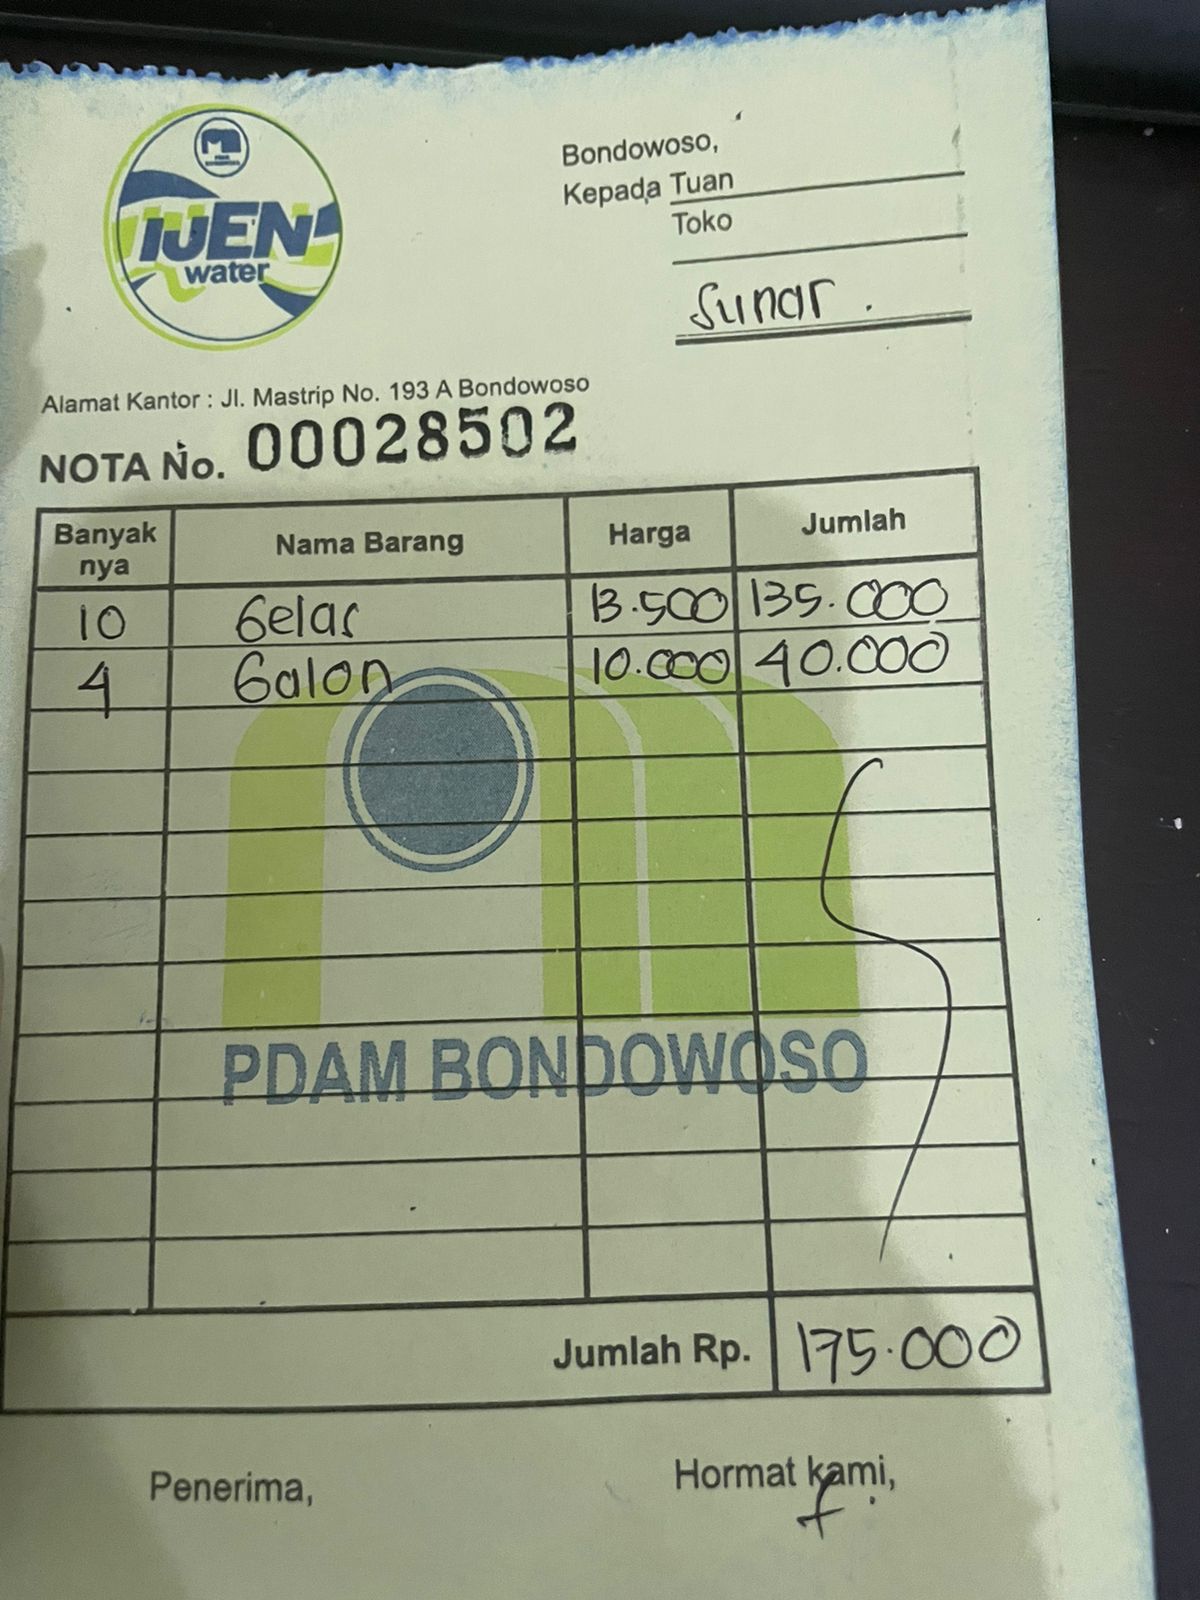 IJEN
water
Bondowoso,
Kepada Tuan
Toko
Sunar.
Alamat Kantor : Jl. Mastrip No. 193 A Bondowoso
NOTA No. 00028502
Banyak nya Nama Barang Harga Jumlah
10 Gelas 13.500 135.000
4 Galon 10.000 40.000
PDAM BONDOWOSO
Jumlah Rp. 175.000
Penerima, Hormat kami,